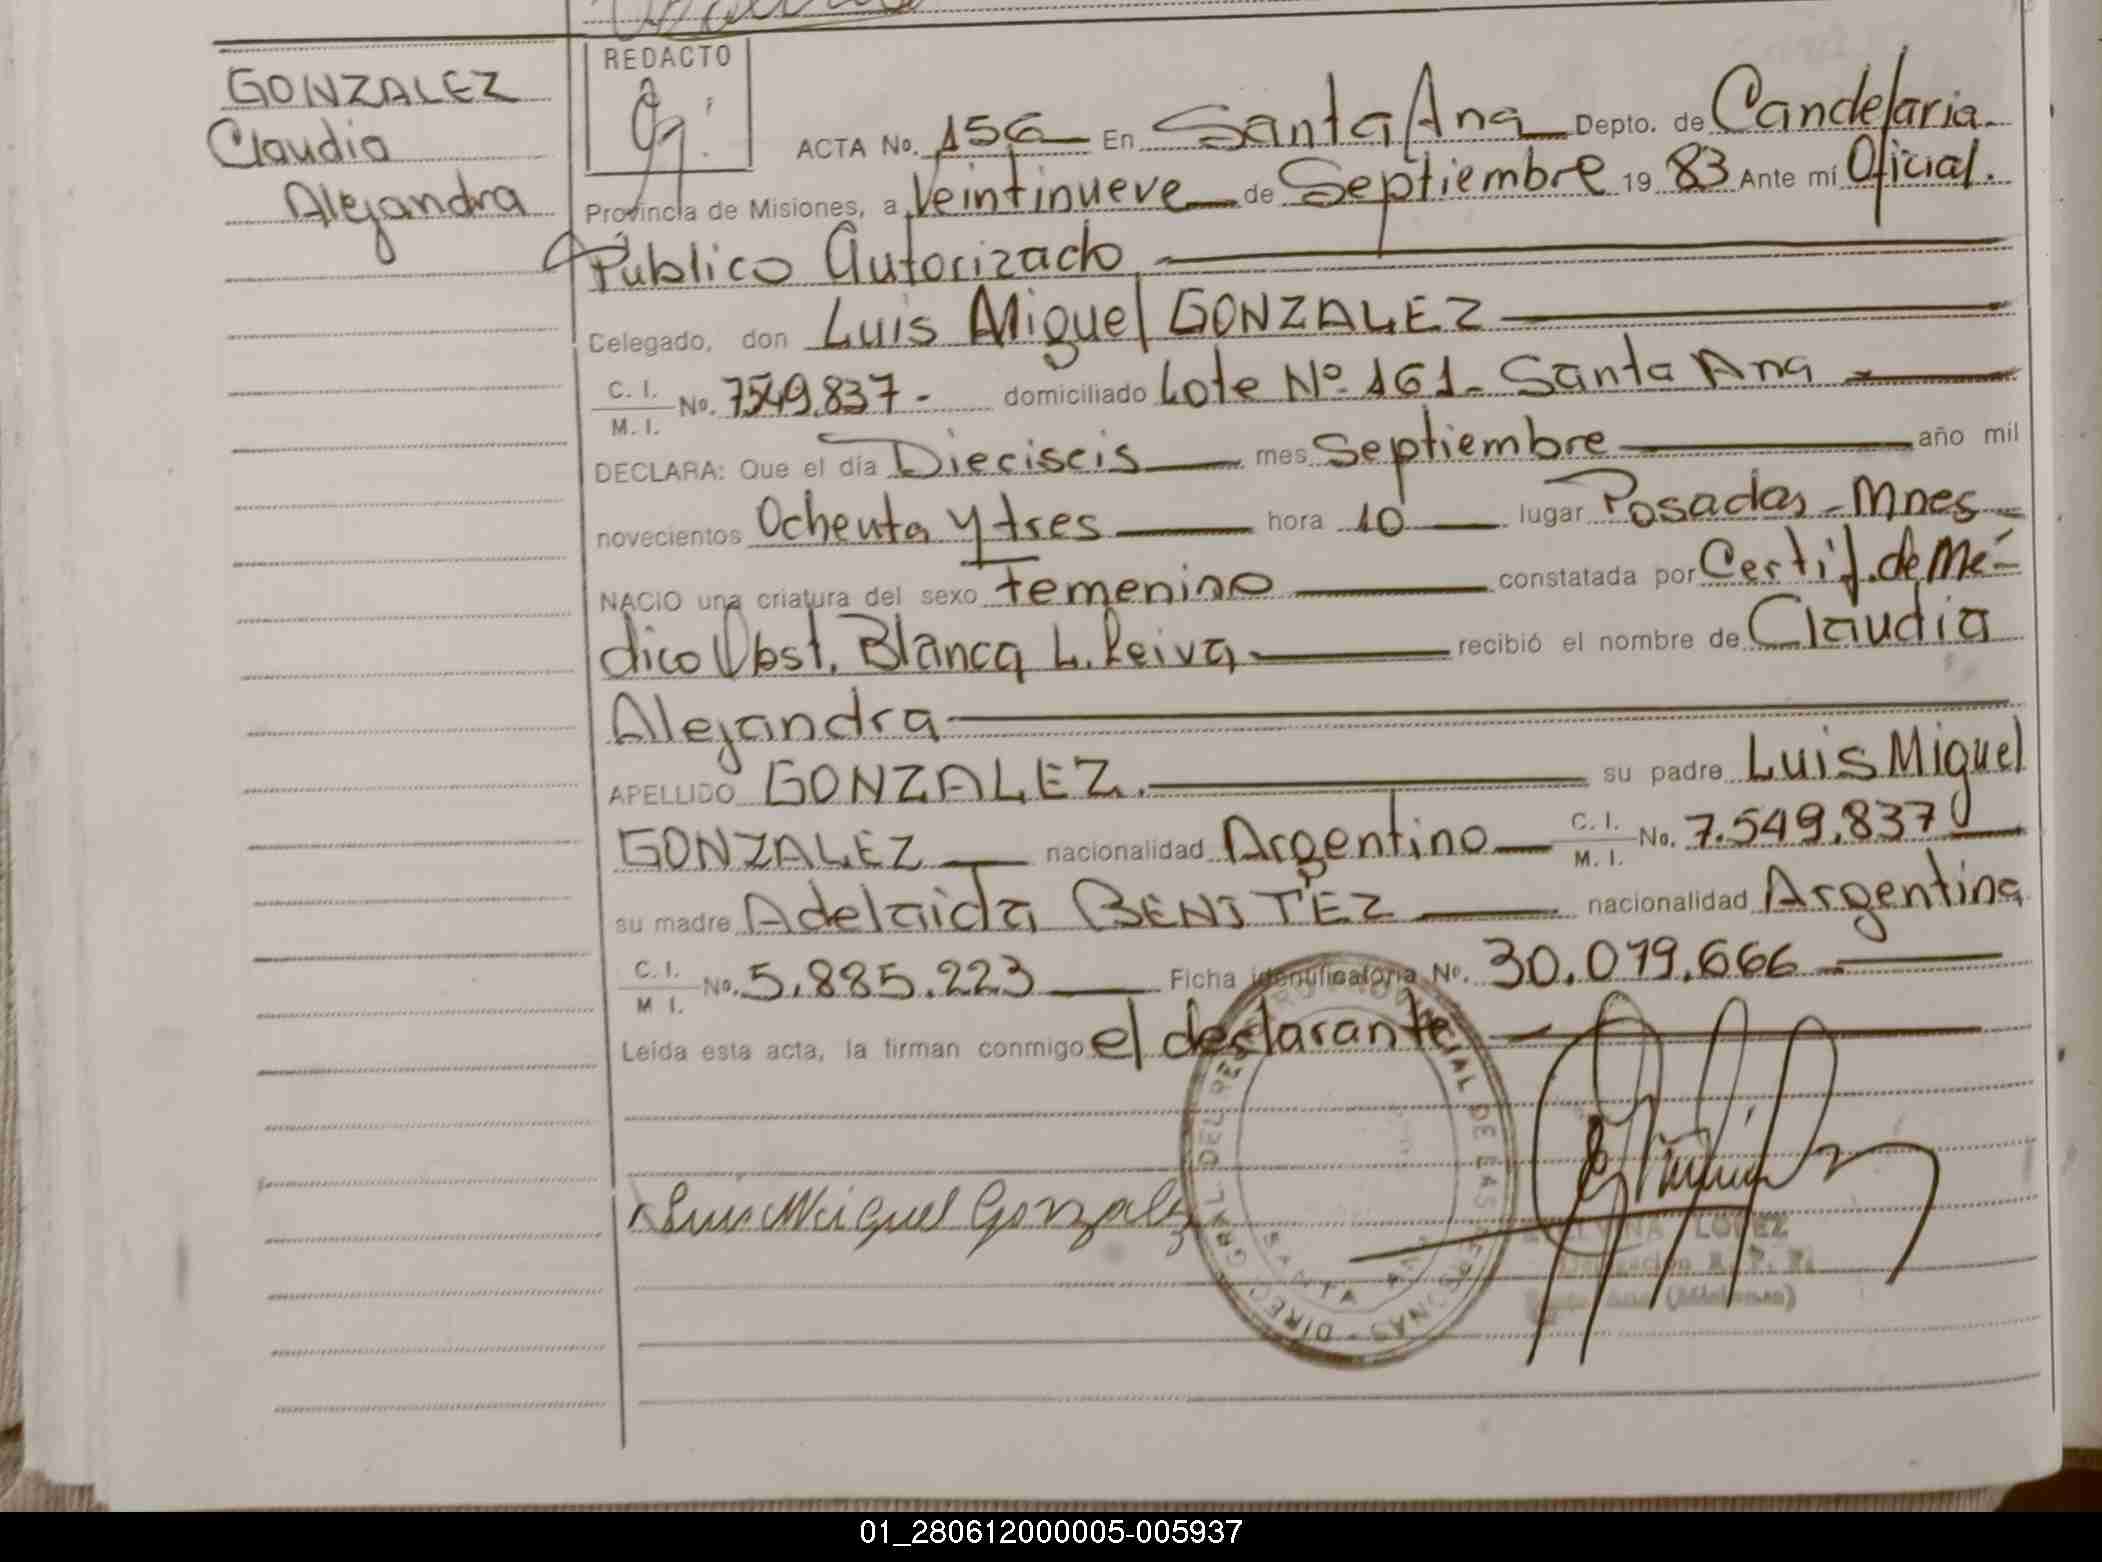 GONZALEZ
Claudia
Alejandra
REDACTO
ACTA No. 156 En Santa Ana Depto. de Candelaria
Provincia de Misiones, a Veintinueve de Septiembre 19 83 Ante mí Oficial.
Público Autorizado
Celegado, don Luis Miguel GONZALEZ
C. I.
M. I. No. 7549.837- domiciliado Lote Nº 161- Santa Ana
DECLARA: Que el día Dieciseis mes Septiembre año mil
novecientos Ochenta y tres hora 10 lugar Posadas - Mnes
NACIO una criatura del sexo femenino constatada por Certif. de Mé-
dico Obst. Blanca L. Leiva recibió el nombre de Claudia
Alejandra
APELLIDO GONZALEZ. su padre Luis Miguel
GONZALEZ nacionalidad Argentino C. I. M. I. No. 7.549.837
su madre Adelaida BENITEZ nacionalidad Argentina
C. I. M I. No. 5.885.223 Ficha identificatoria Nº. 30.079.666
Leída esta acta, la firman conmigo el declarante
Luis Miguel Gonzalez
SANTA ANA
LOPEZ
(Misiones)
01_280612000005-005937